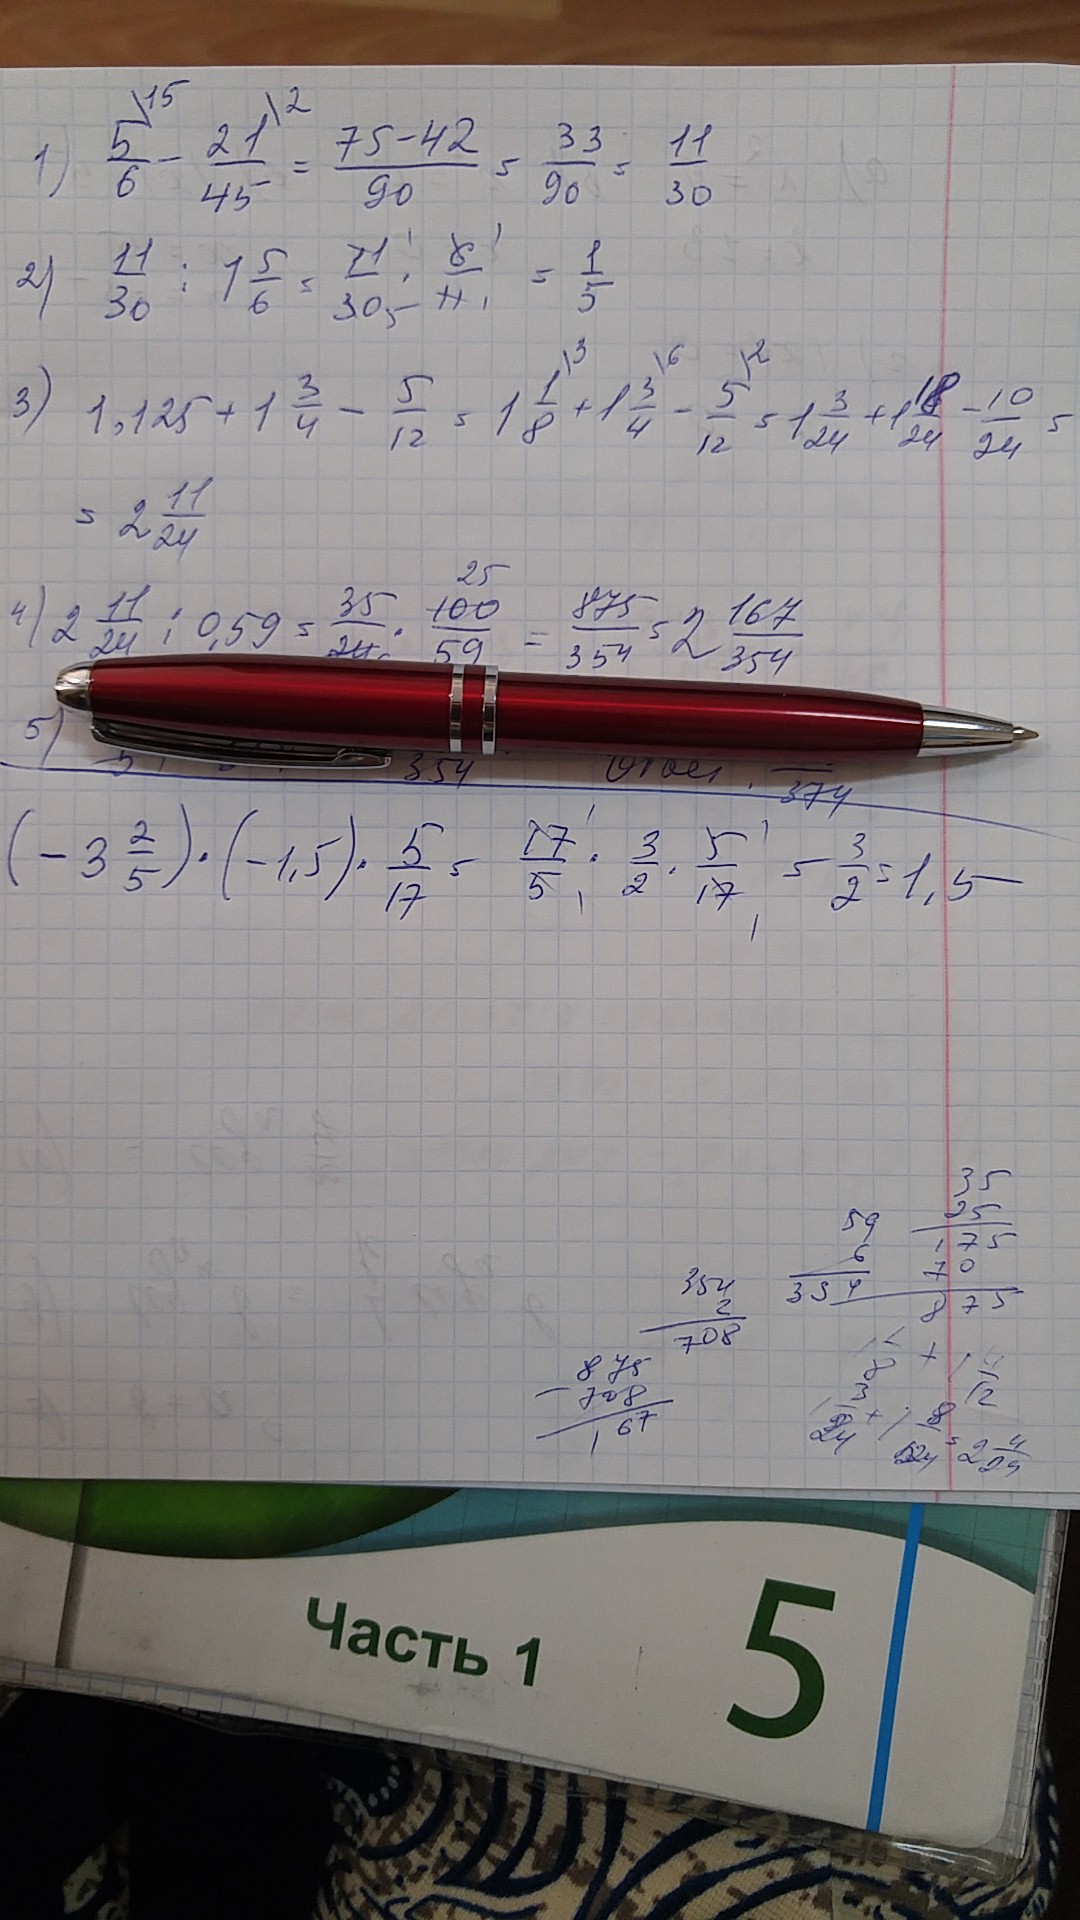 1) 5/6\15 - 21/45\2 = 75-42/90 = 33/90 = 11/30
2) 11/30 : 1 5/6 = 11/30 · 6/11 = 1/5
3) 1,125 + 1 3/4 - 5/12 = 1 1/8\3 + 1 3/4\6 - 5/12\2 = 1 3/24 + 1 18/24 - 10/24 =
= 2 11/24
4) 2 11/24 : 0,59 = 35/24 · 100/59 = 875/354 = 2 167/354
25
5) 354 Ответ: 374
(-3 2/5) · (-1,5) · 5/17 = 17/5 · 3/2 · 5/17 = 3/2 = 1,5
35
25
175
70
875
59
6
354
354
2
708
875
- 708
167
Часть 1
5